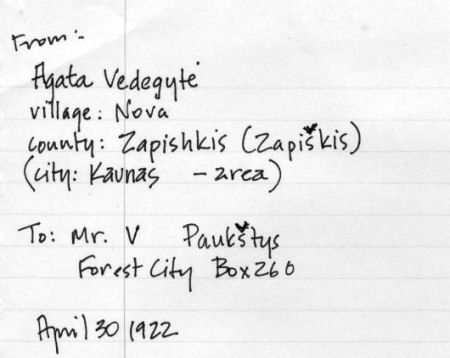 From:-
Agata Vedegytė
village: Nova
county: Zapishkis (Zapiškis)
(city: Kaunas - area)
To: Mr. V Paukštys
Forest City Box 260
April 30 1922